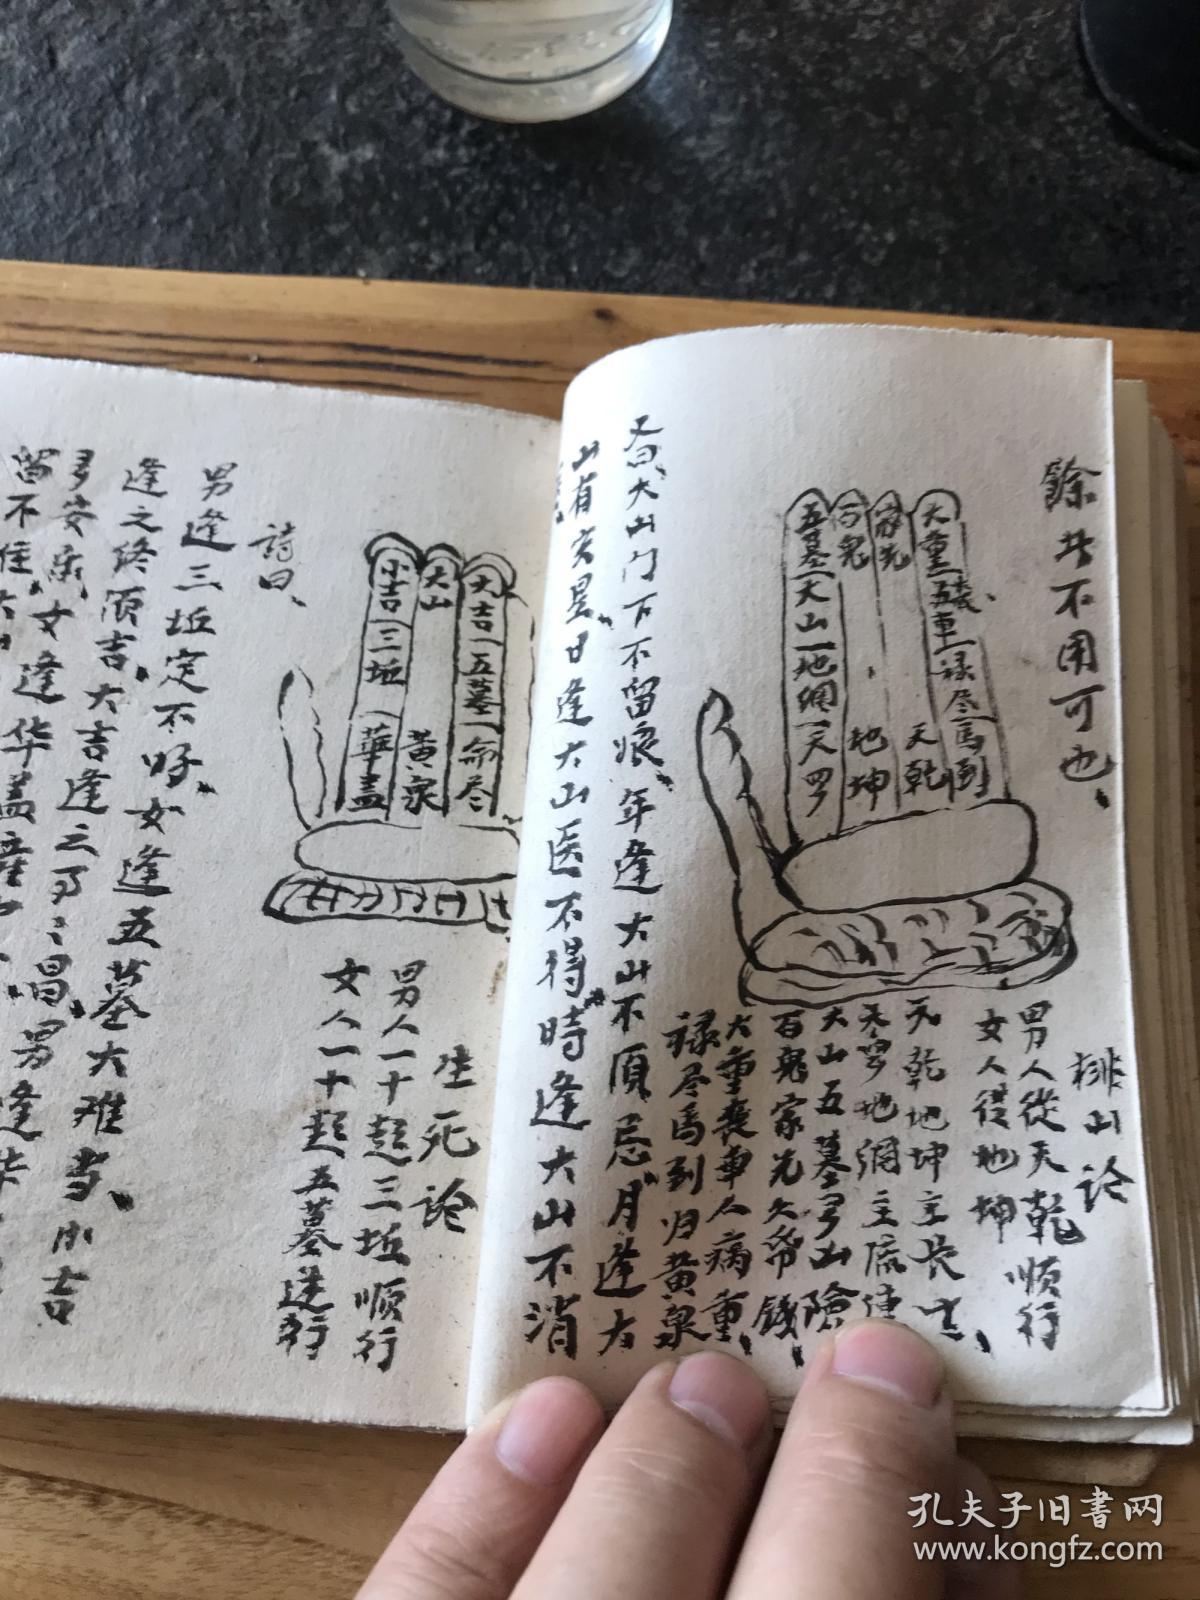 餘共不用可也、
大重 喪車 禄尽 馬到
家先 天乾
百鬼 地坤
五墓 大山 地網 天罗
排山论
男人從天乾顺行
女人從地坤
天乾地坤主长生、
天罗地網主流连
大山五墓多山險
百鬼家先欠紙錢、
大重喪車人病重、
禄尽馬到归黄泉
又曰、大山门下不留痕、年逢大山不須忌、月逢大
山有灾星、日逢大山医不得、時逢大山不消
大吉 五墓 命尽
大山 黄泉
小吉 三坵 華盖
生死论
男人一十起三坵順行
女人一十起五墓逆行
詩曰、
男逢三坵定不好、女逢五墓大难当、小吉
逢之终須吉、大吉逢之
多安乐、女逢华盖
留不住
孔夫子旧书网
www.kongfz.com